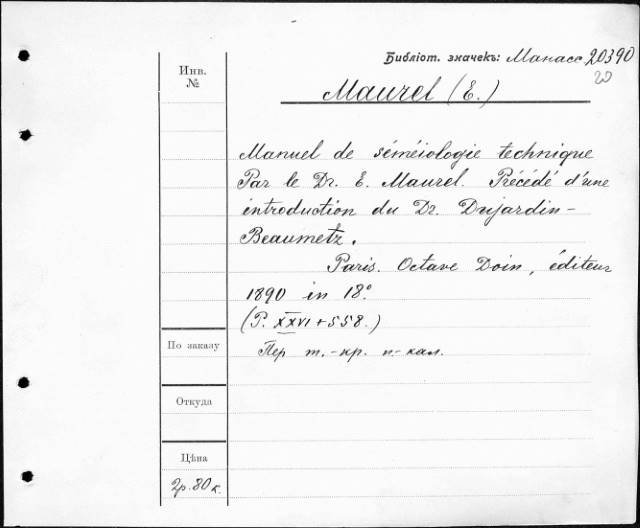 Библіот. значекъ: Манасс. 20390
20
Инв.
№
Maurel (E.)
Manuel de séméiologie technique
Par le Dr. E. Maurel. Précédé d'une
introduction du Dr. Dujardin-
Beaumetz.
Paris. Octave Doin, éditeur
1890 in 18°.
(P. XXVI + 558.)
По заказу
Пер т.-кр. п-кал.
Откуда
Цѣна
2р. 80к.